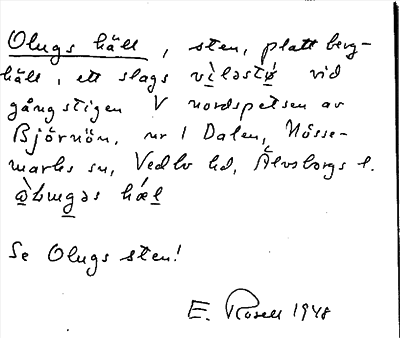 Olugs häll, sten, platt berg-
häll, ett slags vìləstǿ vid
gångstigen V nordspetsen av
Björnön, nr 1 Dalen, Nösse-
marks sn, Vedbo hd, Älvsborgs l.
òlɯgəs hæ̀l
Se Olugs sten!
E. Rosell 1948